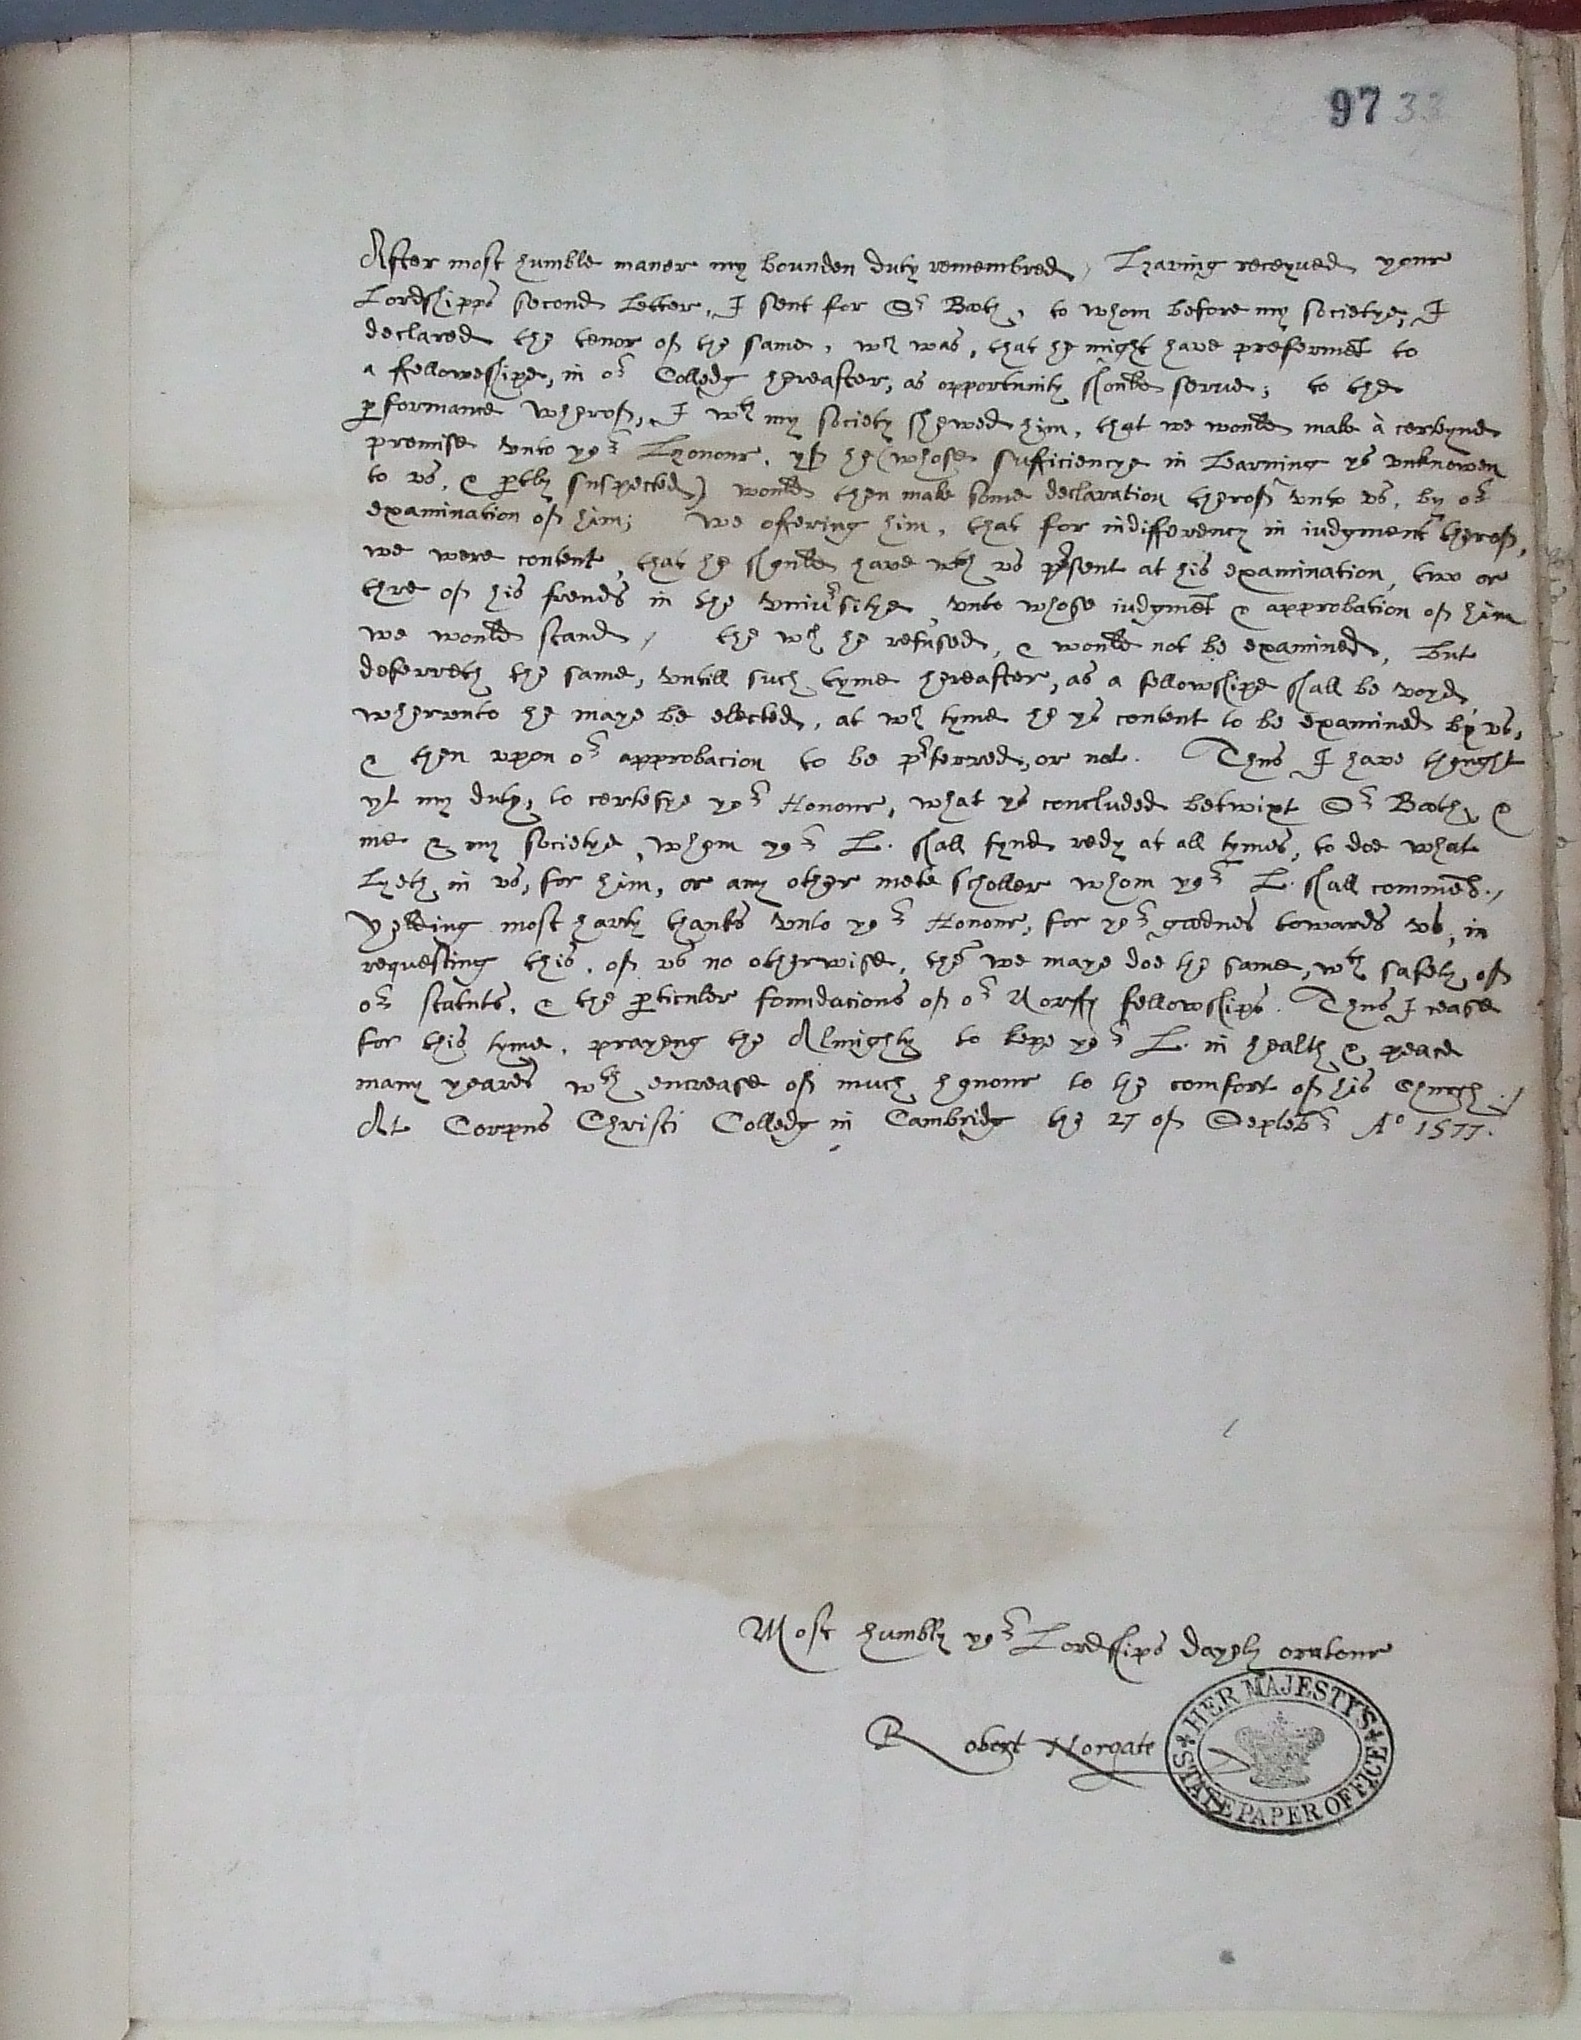 97 33
After most humble maner my bounden duty remembred, Having receyued your
Lordshipps second Letter, I sent for Sr Booth, to whom before my societye, I
declared the tenor of the same, wch was, that he might have prefermēt to
a ffelloweshipe, in or Colledg hereafter, as opportunity should serve; to the
pformance wherof, I wth my society shewed him, that we would make a certayne
promise vnto yor Honour, yf he (whose sufficiencye in Learning ys vnknowen
to vs, & ptly suspected) would then make some declaration therof vnto vs, by or
examination of him; we offering him, that for indifferency in iudgment therof,
we were content, that he should have wth vs psent at his examination, two or
thre of his frends in the vniuersitye, vnto whose iudgmēt & approbation of him
we would stand, the wch he refused, & would not be examined, but
deferreth the same, vntill such tyme hereafter, as a fellowshipe shall be voyd
wherunto he maye be elected, at wch tyme he ys content to be examined by vs,
& then vpon or approbacion to be pferred, or not. Thus I have thought
yt my duty, to certefye yor Honour, what ys concluded betwixt Sr Booth, &
me & my societye, whom yor L. shall fynd redy at all tymes, to doe what
Lyeth in vs, for him, or any other mete scholler whom yor L. shall commēd.,
Yelding most harty thanks vnto yor Honour, for yor goodnes towards vs, in
requesting this, of vs no otherwise, thē we maye doe the same, wth safety of
or statuts, & the pticuler foundacions of or Norff fellowships. Thus I cease
for this tyme, prayeng the Almighty to kepe yor L. in health & peace
many yeares wth encrease of much honour to the comfort of his Church./
At Corpus Christi Colledg in Cambridg the 27 of Septēbr Ao 1577.
Most humbly yor Lordships dayely oratour
Robert Norgate
HER MAJESTY'S STATE PAPER OFFICE